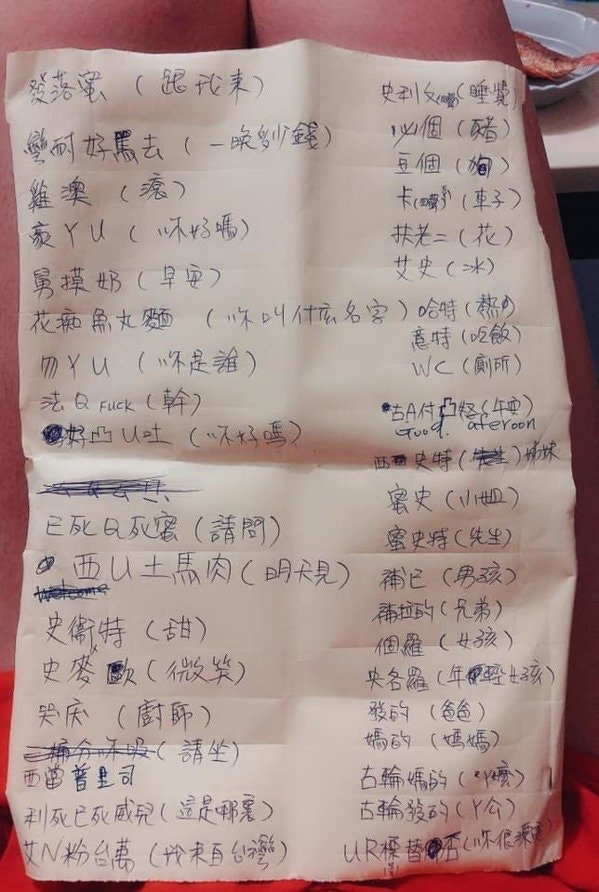 發落蜜（跟我來）
蠻耐好馬去（一晚多少錢）
雞澳（滾）
豪ㄚU（你好嗎）
舅摸奶（早安）
花痴魚丸麵（你叫什ㄠ名字）
ㄞㄚU（你是誰）
法Q FUCK（幹）
好凸U吐（你好嗎）
已死Q死蜜（請問）
西U土馬肉（明天見）
Welcome
史衛特（甜）
史麥歐（微笑）
哭庆（廚師）
（請坐）
西當普里司
利死已死威兒（這是哪裏）
艾N粉台萬（我來自台灣）
史利(噴)（睡覺）
必個（豬）
豆個（狗）
卡(噴)（車子）
扶老二（花）
艾史（冰）
哈特（熱的）
意特（吃飯）
WC（廁所）
古A付凸（午安）
Good. aferoon
西史特 姊妹
蜜史（小姐）
蜜史特（先生）
補已（男孩）
補拉的（兄弟）
個羅（女孩）
央各羅（年輕女孩）
發的（爸爸）
媽的（媽媽）
古輪媽的（ㄚ嬤）
古輪發的（ㄚ公）
UR標替否（你很漂亮）